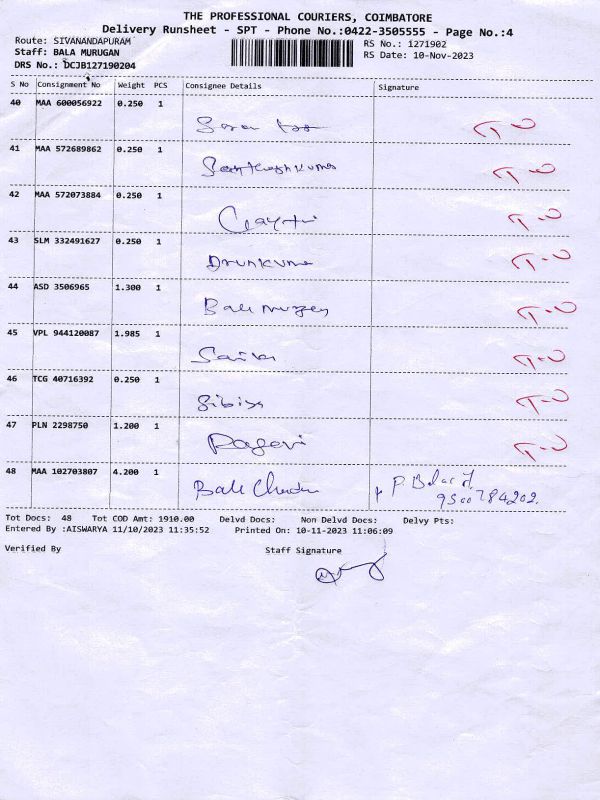 THE PROFESSIONAL COURIERS, COIMBATORE
Delivery Runsheet - SPT - Phone No.:0422-3505555 - Page No.:4
Route: SIVANANDAPURAM
RS No.: 1271902
Staff: BALA MURUGAN
RS Date: 10-Nov-2023
DRS No.: DCJB127190204
S No Consignment No Weight PCS Consignee Details Signature
40 MAA 600056922 0.250 1
41 MAA 572689862 0.250 1
Santhoshkumar
42 MAA 572073884 0.250 1
Gayatri
43 SLM 332491627 0.250 1
Arunkumar
44 ASD 3506965 1.300 1
Balamurugan
45 VPL 944120087 1.985 1
46 TCG 40716392 0.250 1
Sibiya
47 PLN 2298750 1.200 1
Ragavi
48 MAA 102703807 4.200 1
Bala
9500784202.
Tot Docs: 48 Tot COD Amt: 1910.00 Delvd Docs: Non Delvd Docs: Delvy Pts:
Entered By :AISWARYA 11/10/2023 11:35:52 Printed On: 10-11-2023 11:06:09
Verified By Staff Signature